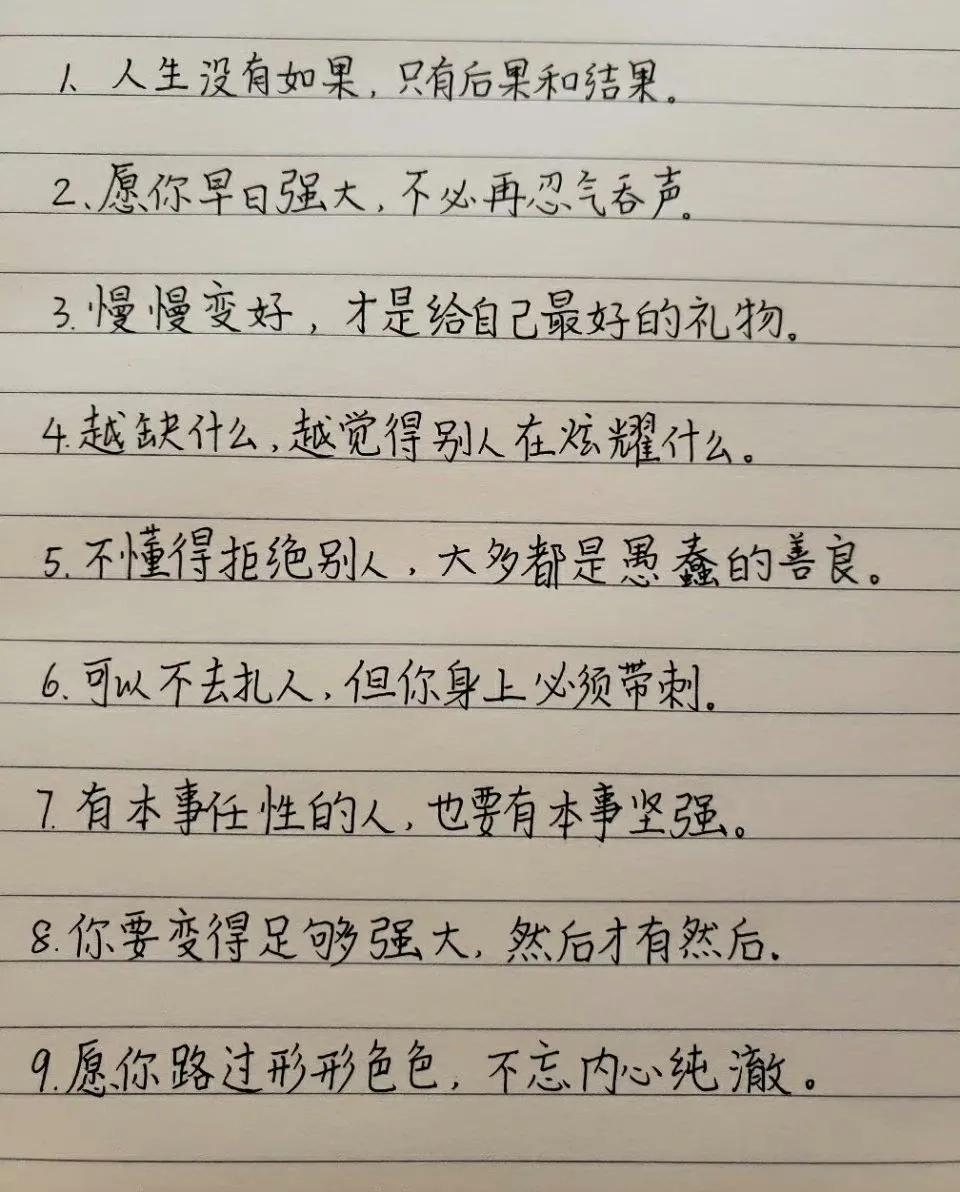 1、人生没有如果,只有后果和结果。
2、愿你早日强大,不必再忍气吞声。
3.慢慢变好,才是给自己最好的礼物。
4.越缺什么,越觉得别人在炫耀什么。
5.不懂得拒绝别人,大多都是愚蠢的善良。
6.可以不去扎人,但你身上必须带刺。
7.有本事任性的人,也要有本事坚强。
8.你要变得足够强大,然后才有然后.
9.愿你路过形形色色,不忘内心纯澈。